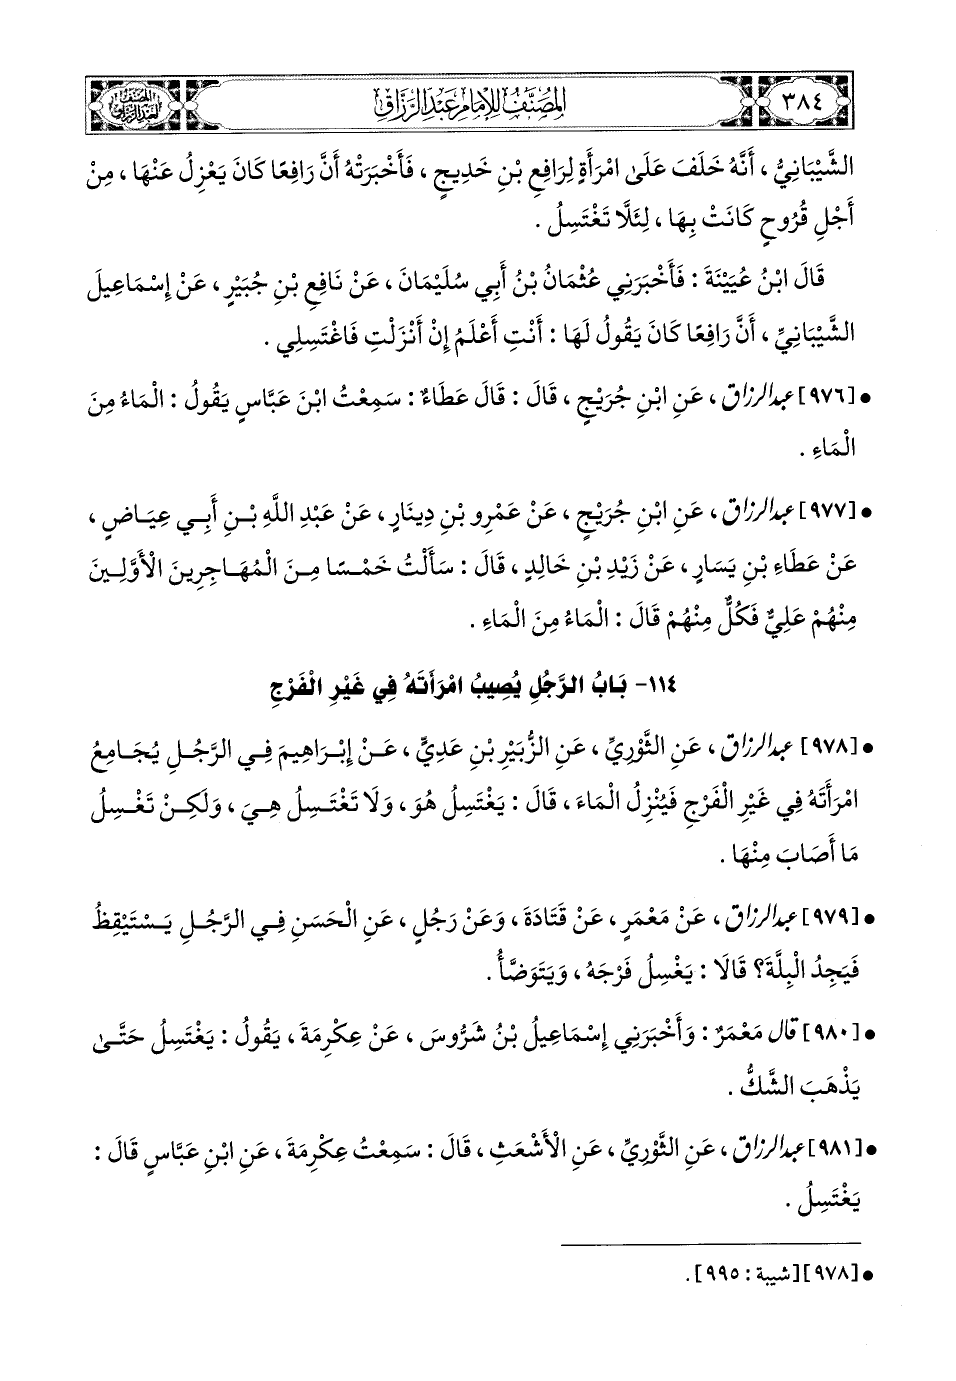 ٣٨٤
المُصَنَّفُ لِلإِمَامِ عَبْدِ الرَّزَّاقِ
المصنف
لعبد الرزاق
الشَّيْبَانِيُّ ، أَنَّهُ خَلَفَ عَلَى امْرَأَةٍ لِرَافِعِ بْنِ خَدِيجٍ ، فَأَخْبَرَتْهُ أَنَّ رَافِعًا كَانَ يَعْزِلُ عَنْهَا ، مِنْ
أَجْلِ قُرُوحٍ كَانَتْ بِهَا ، لِئَلَّا تَغْتَسِلُ .
قَالَ ابْنُ عُيَيْنَةَ : فَأَخْبَرَنِي عُثْمَانُ بْنُ أَبِي سُلَيْمَانَ ، عَنْ نَافِعِ بْنِ جُبَيْرٍ ، عَنْ إِسْمَاعِيلَ
الشَّيْبَانِيِّ ، أَنَّ رَافِعًا كَانَ يَقُولُ لَهَا : أَنْتِ أَعْلَمُ إِنْ أَنْزَلْتِ فَاغْتَسِلِي .
• [٩٧٦] عبد الرزاق ، عَنِ ابْنِ جُرَيْجٍ ، قَالَ : قَالَ عَطَاءٌ : سَمِعْتُ ابْنَ عَبَّاسٍ يَقُولُ : الْمَاءُ مِنَ
الْمَاءِ .
• [٩٧٧] عبد الرزاق ، عَنِ ابْنِ جُرَيْجٍ ، عَنْ عَمْرِو بْنِ دِينَارٍ ، عَنْ عَبْدِ اللَّهِ بْنِ أَبِي عِيَاضٍ ،
عَنْ عَطَاءِ بْنِ يَسَارٍ ، عَنْ زَيْدِ بْنِ خَالِدٍ ، قَالَ : سَأَلْتُ خَمْسًا مِنَ الْمُهَاجِرِينَ الْأَوَّلِينَ
مِنْهُمْ عَلِيٌّ فَكُلٌّ مِنْهُمْ قَالَ : الْمَاءُ مِنَ الْمَاءِ .
١١٤- بَابُ الرَّجُلِ يُصِيبُ امْرَأَتَهُ فِي غَيْرِ الْفَرْجِ
• [٩٧٨] عبد الرزاق ، عَنِ الثَّوْرِيِّ ، عَنِ الزُّبَيْرِ بْنِ عَدِيٍّ ، عَنْ إِبْرَاهِيمَ فِي الرَّجُلِ يُجَامِعُ
امْرَأَتَهُ فِي غَيْرِ الْفَرْجِ فَيُنْزِلُ الْمَاءَ ، قَالَ : يَغْتَسِلُ هُوَ ، وَلَا تَغْتَسِلُ هِيَ ، وَلَكِنْ تَغْسِلُ
مَا أَصَابَ مِنْهَا .
• [٩٧٩] عبد الرزاق ، عَنْ مَعْمَرٍ ، عَنْ قَتَادَةَ ، وَعَنْ رَجُلٍ ، عَنِ الْحَسَنِ فِي الرَّجُلِ يَسْتَيْقِظُ
فَيَجِدُ الْبِلَّةَ؟ قَالَا : يَغْسِلُ فَرْجَهُ ، وَيَتَوَضَّأُ .
• [٩٨٠] قال مَعْمَرٌ : وَأَخْبَرَنِي إِسْمَاعِيلُ بْنُ شَرُّوسَ ، عَنْ عِكْرِمَةَ ، يَقُولُ : يَغْتَسِلُ حَتَّى
يَذْهَبَ الشَّكُّ .
• [٩٨١] عبد الرزاق ، عَنِ الثَّوْرِيِّ ، عَنِ الْأَشْعَثِ ، قَالَ : سَمِعْتُ عِكْرِمَةَ ، عَنِ ابْنِ عَبَّاسٍ قَالَ :
يَغْتَسِلُ .
• [٩٧٨] [شيبة : ٩٩٥] .